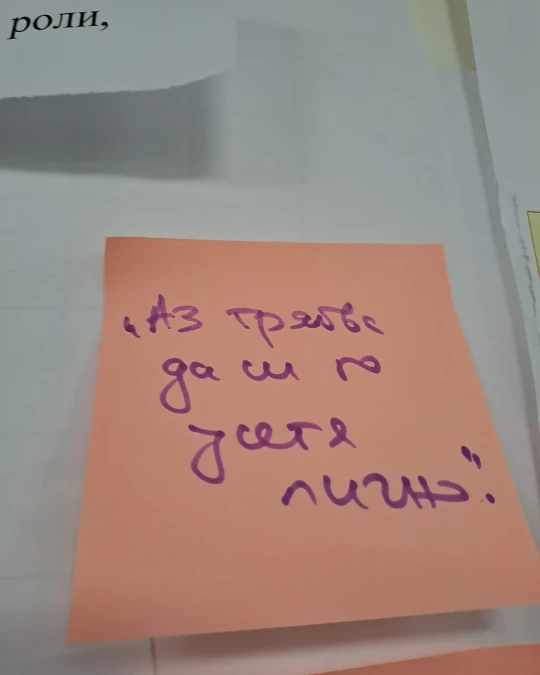 роли,
„Аз трябва
да си го
усетя
лично".